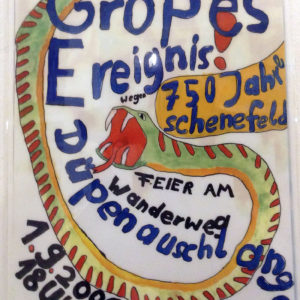 Großes
Ereignis!
wegen
750 Jahr
schenefeld
FEIER AM
Wanderweg
Düpenauschlang
1.9.200
18 U